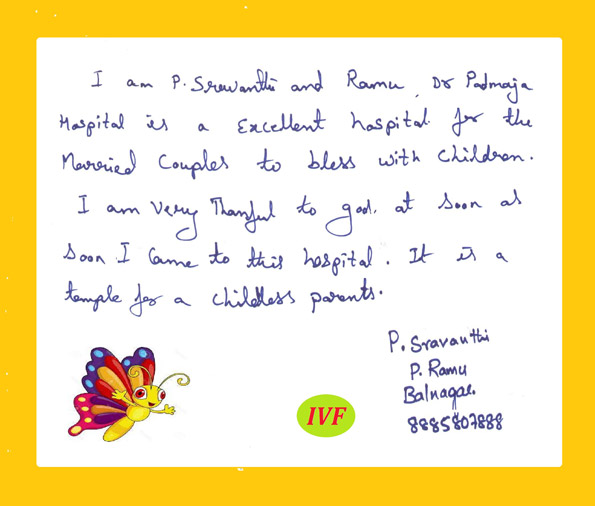 I am P. Srewanthi and Ramu, Dr Padmaja
Hospital is a Excellent hospital for the
Married Couples to bless with children.
I am very Thanful to god. at soon as
soon I came to this hospital. It is a
temple for a childless parents.
P. Sravanthi
P. Ramu
Balnagar
8885807888
IVF